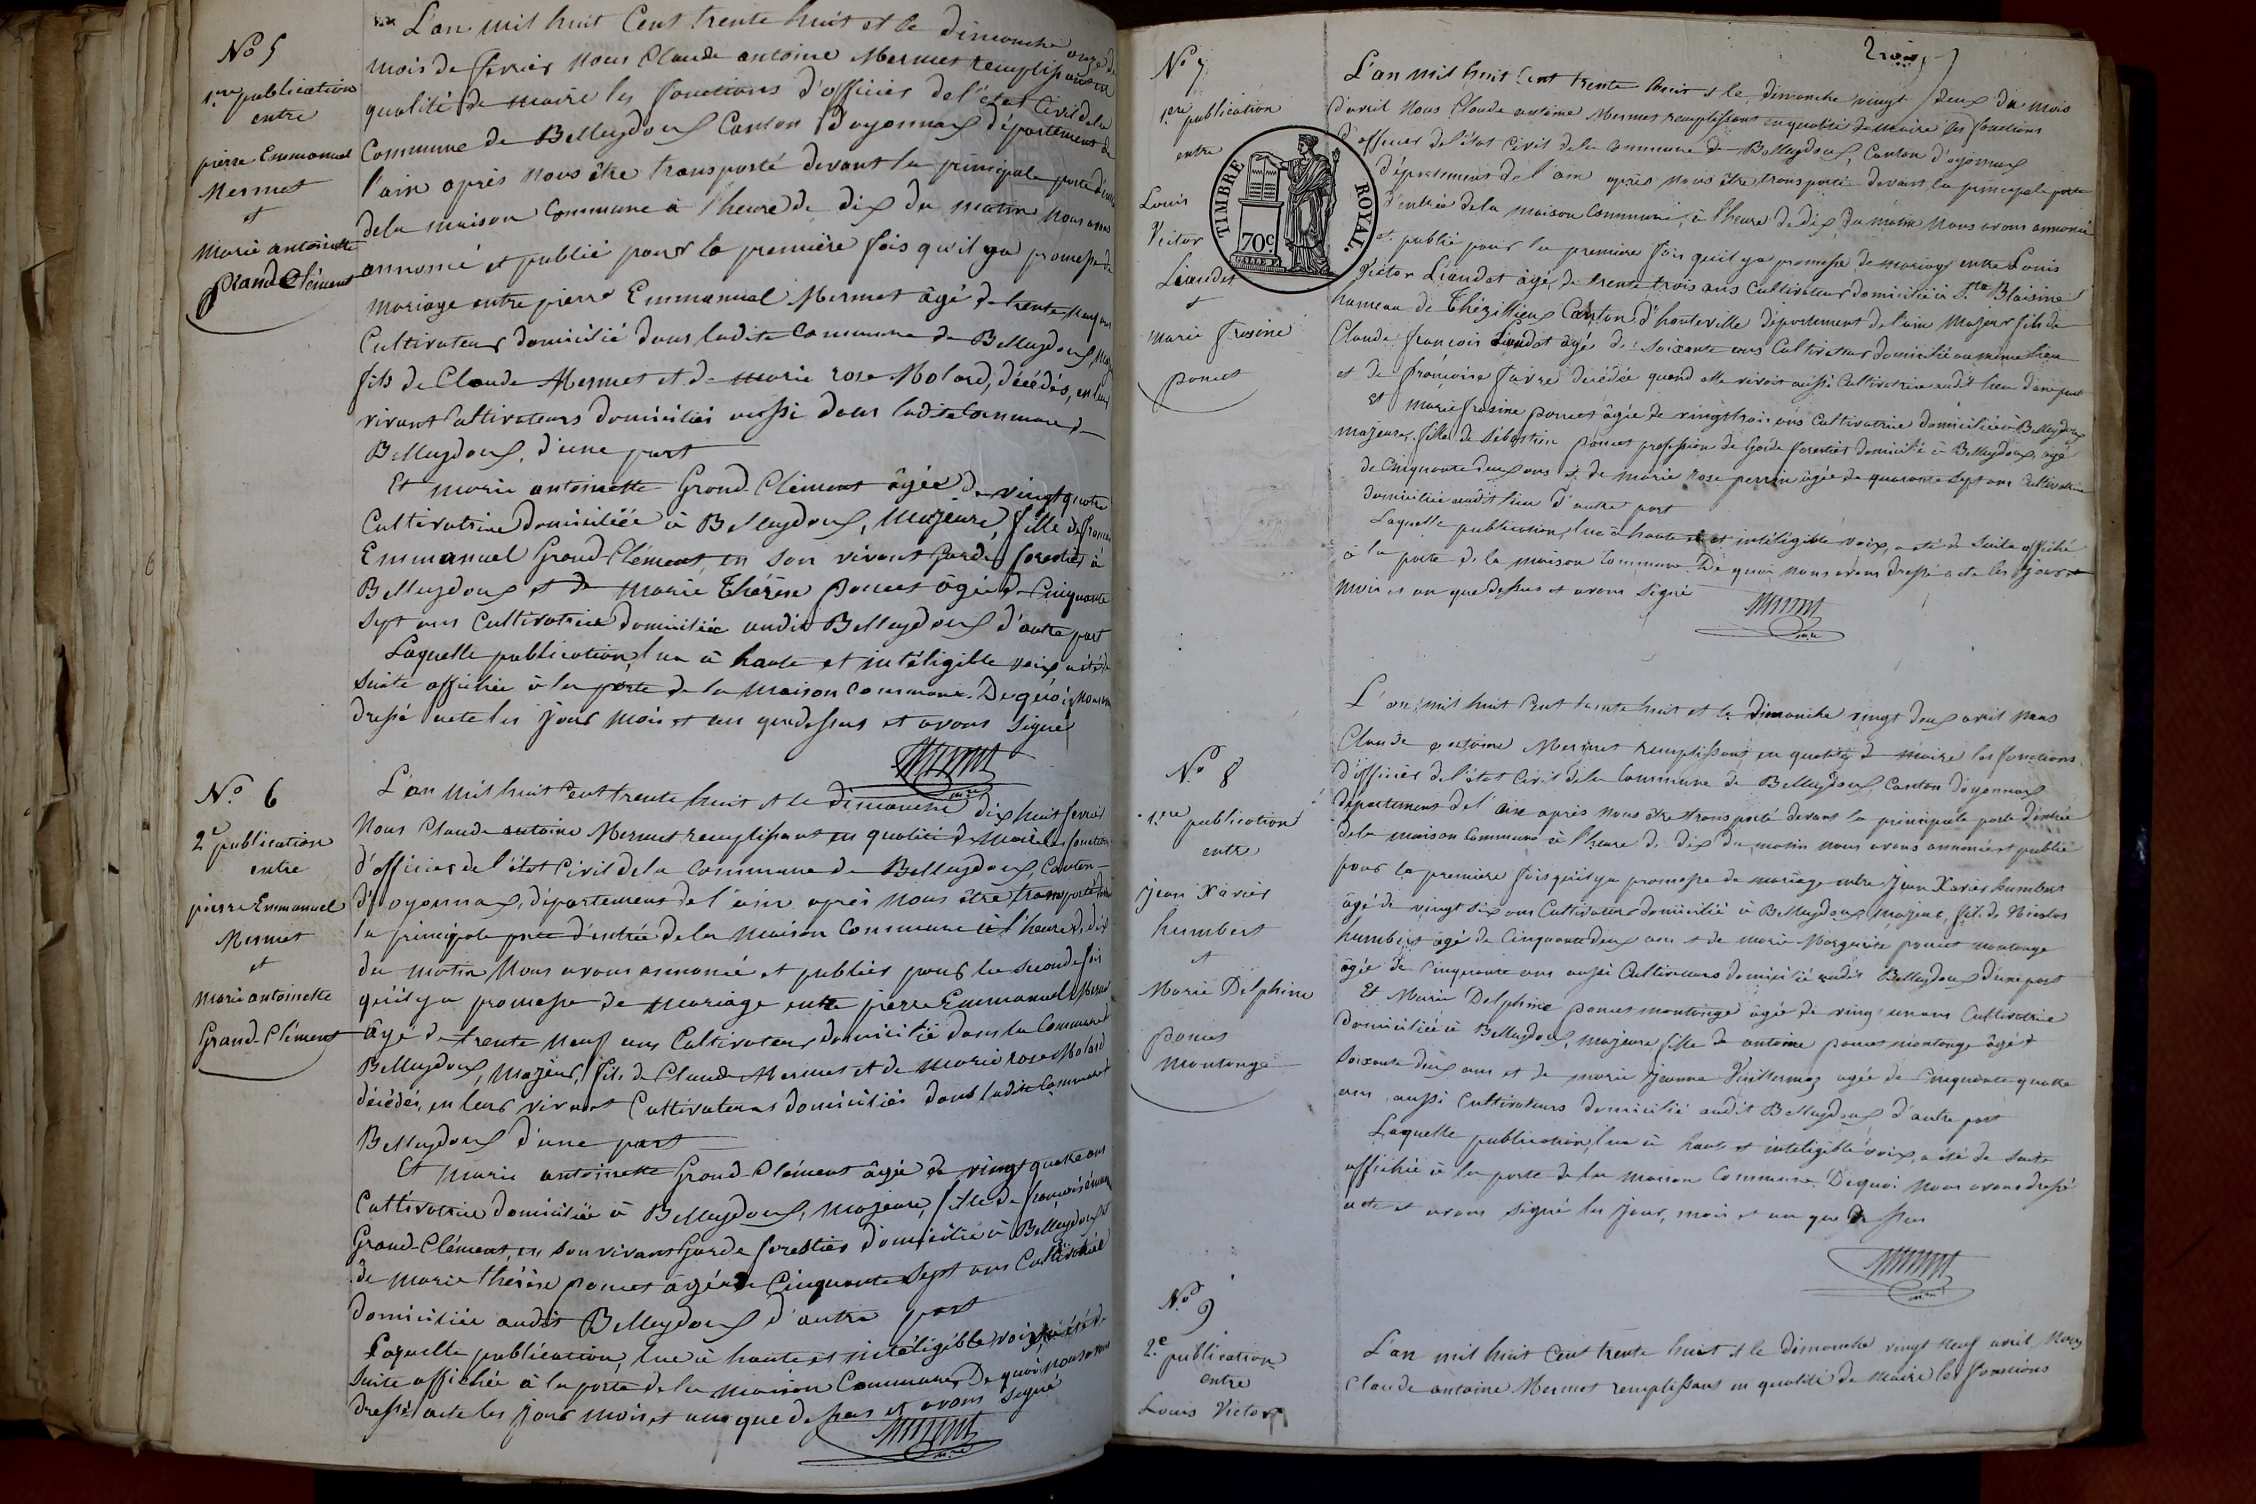 No 5
1.re publication
entre
pierre Emmanuel
Mermet
et
Marie antoinette
Grand Clément
L'an mil huit Cent trente huit et le dimanche onze du
mois de fevrier Nous Claude antoine Mermet remplissant en
qualité de maire les fonctions d'officier de l'état Civil de la
Commune de Belleydoux Canton d'oyonnax département de
l'ain après Nous être transporté devant la principale porte d'entrée
dela maison Commune à l'heure de dix du matin Nous avons
annoncé et publié pour la première fois qu'il ya promesse de
mariage entre pierre Emmanuel Mermet âgé de trente neuf ans
Cultivateur domicilié dans ladite Commune de Belleydoux,
fils de Claude Mermet et de marie rose Molard, décédés, en leur
vivant Cultivateurs domiciliés aussi dans ladite Commune de
Belleydoux, d'une part
Et marie antoinette Grand-Clément âgée de vingt quatre
Cultivatrice domiciliée à Belleydoux, Majeure, fille de françois
Emmanuel Grand-Clément, en son vivant Garde forestier à
Belleydoux et de marie Thérèse poncet âgée de Cinquante
Sept ans Cultivatrice domiciliée audit Belleydoux d'autre part
Laquelle publication, lue à haute et intéligible voix a été de
Suite affichée à la porte de la Maison Commune. De quoi, Nous avons
dressé acte les jour mois et an que dessus et avons Signé
No. 6
2.e publication
entre
pierre Emmanuel
Mermet
et
Marie antoinette
Grand-Clément
L'an Mil huit Cent trente huit et le dimanche dix huit fevrier
Nous Claude antoine Mermet remplissant en qualité de Maire les fonctions
d'officier de l'état Civil de la Commune de Belleydoux, Canton
d'oyonnax, département de l'ain après Nous être transporté devant
la principale porte d'entrée de la Maison Commune à l'heure de dix
du matin Nous avons annoncé et publiés pour la seconde fois
qu'il ya promesse de mariage entre pierre Emmanuel Mermet
âgé de trente Neuf ans Cultivateur domicilié dans la Commune de
Belleydoux, Majeur, fils de Claude Mermet et de Marie rose Molard
décédés, en leur vivant Cultivateurs domiciliés dans ladite Commune de
Belleydoux d'une part
Et Marie antoinette Grand-Clément âgée de vingt quatre ans
Cultivatrice domiciliée à Belleydoux, Majeure, fille de françois
Grand-Clément, en son vivant Garde forestier domicilié à Belleydoux et
de Marie thérèse poncet âgée de Cinquante Sept ans Cultivatrice
domiciliée audit Belleydoux d'autre part
Laquelle publication, lue à haute et intéligible voix, a été de
Suite affichée à la porte de la Maison Commune. De quoi, nous avons
dressé acte les jour mois et an que dessus et avons signé
No 7
1.re publication
entre
Louis
Victor
Liaudet
et
Marie frosine
poncet
TIMBRE ROYAL.
70c.
L'an mil huit Cent trente huit et le dimanche vingt deux du mois
d'avril Nous Claude antoine Mermet remplissant en qualité de maire les fonctions
d'officier de l'état Civil dela Commune de Belleydoux, Canton d'oyonnax
département de l'ain après nous être transporté devant la principale porte
d'entrée dela maison Commune, à l'heure de dix du matin Nous avons annoncé
et publié pour la première fois qu'il ya promesse de mariage entre Louis
Victor Liaudet âgé de trente trois ans Cultivateur domicilié à S.te Blaisine
hameau de Thézillieu Canton d'hauteville département de l'ain Majeur fils de
Claude françois Liaudet âgé de soixante ans Cultivateur domicilié au même lieu
et de françoise favre décédée quand elle vivoit aussi Cultivatrice audit lieu d'une part
Et marie frosine poncet âgée de vingt trois ans Cultivatrice domiciliée à Belleydoux
majeure, fille de Sébastien poncet profession de Garde forestier domicilié à Belleydoux, âgé
de Cinquante deux ans et de marie rose perrin âgée de quarante Sept ans Cultivatrice
domiciliée audit lieu d'autre part
Laquelle publication, lue à haute et intéligible voix, a été de Suite affichée
à la porte de la maison Commune. De quoi nous avons dressé acte les jour
mois et an que dessus et avons Signé
No 8
1.re publication
entre
Jean Xavier
humbert
et
Marie Delphine
poncet
Montange
L'an mil huit Cent trente huit et le dimanche vingt deux avril Nous
Claude antoine Mermet remplissant en qualité de maire les fonctions
d'officier de l'état Civil de la Commune de Belleydoux, Canton d'oyonnax
département de l'ain après Nous être transporté devant la principale porte d'entrée
dela maison Commune à l'heure de dix du matin nous avons annoncé et publié
pour la première fois qu'il ya promesse de mariage entre Jean Xavier humbert
âgé de vingt six ans Cultivateur domicilié à Belleydoux, Majeur, fils de Nicolas
humbert âgé de Cinquante deux ans et de marie Marguerite poncet montange
âgée de Cinquante ans aussi Cultivateurs domicilié audit Belleydoux d'une part
Et Marie Delphine poncet montange âgée de vingt un ans Cultivatrice
domiciliée à Belleydoux, majeure fille de antoine poncet montange âgé de
soixante deux ans et de marie Jeanne Vuillermoz agée de Cinquante quatre
ans, aussi Cultivateurs domicilié audit Belleydoux d'autre part
Laquelle publication, lue à haute et intéligible voix, a été de Suite
affichée à la porte de la maison Commune. De quoi Nous avons dressé
acte et avons signé les jour, mois et an que dessus
No 9
2.e publication
entre
Louis Victor
L'an mil huit Cent trente huit et le dimanche vingt neuf avril, Nous
Claude antoine Mermet remplissant en qualité de Maire les fonctions